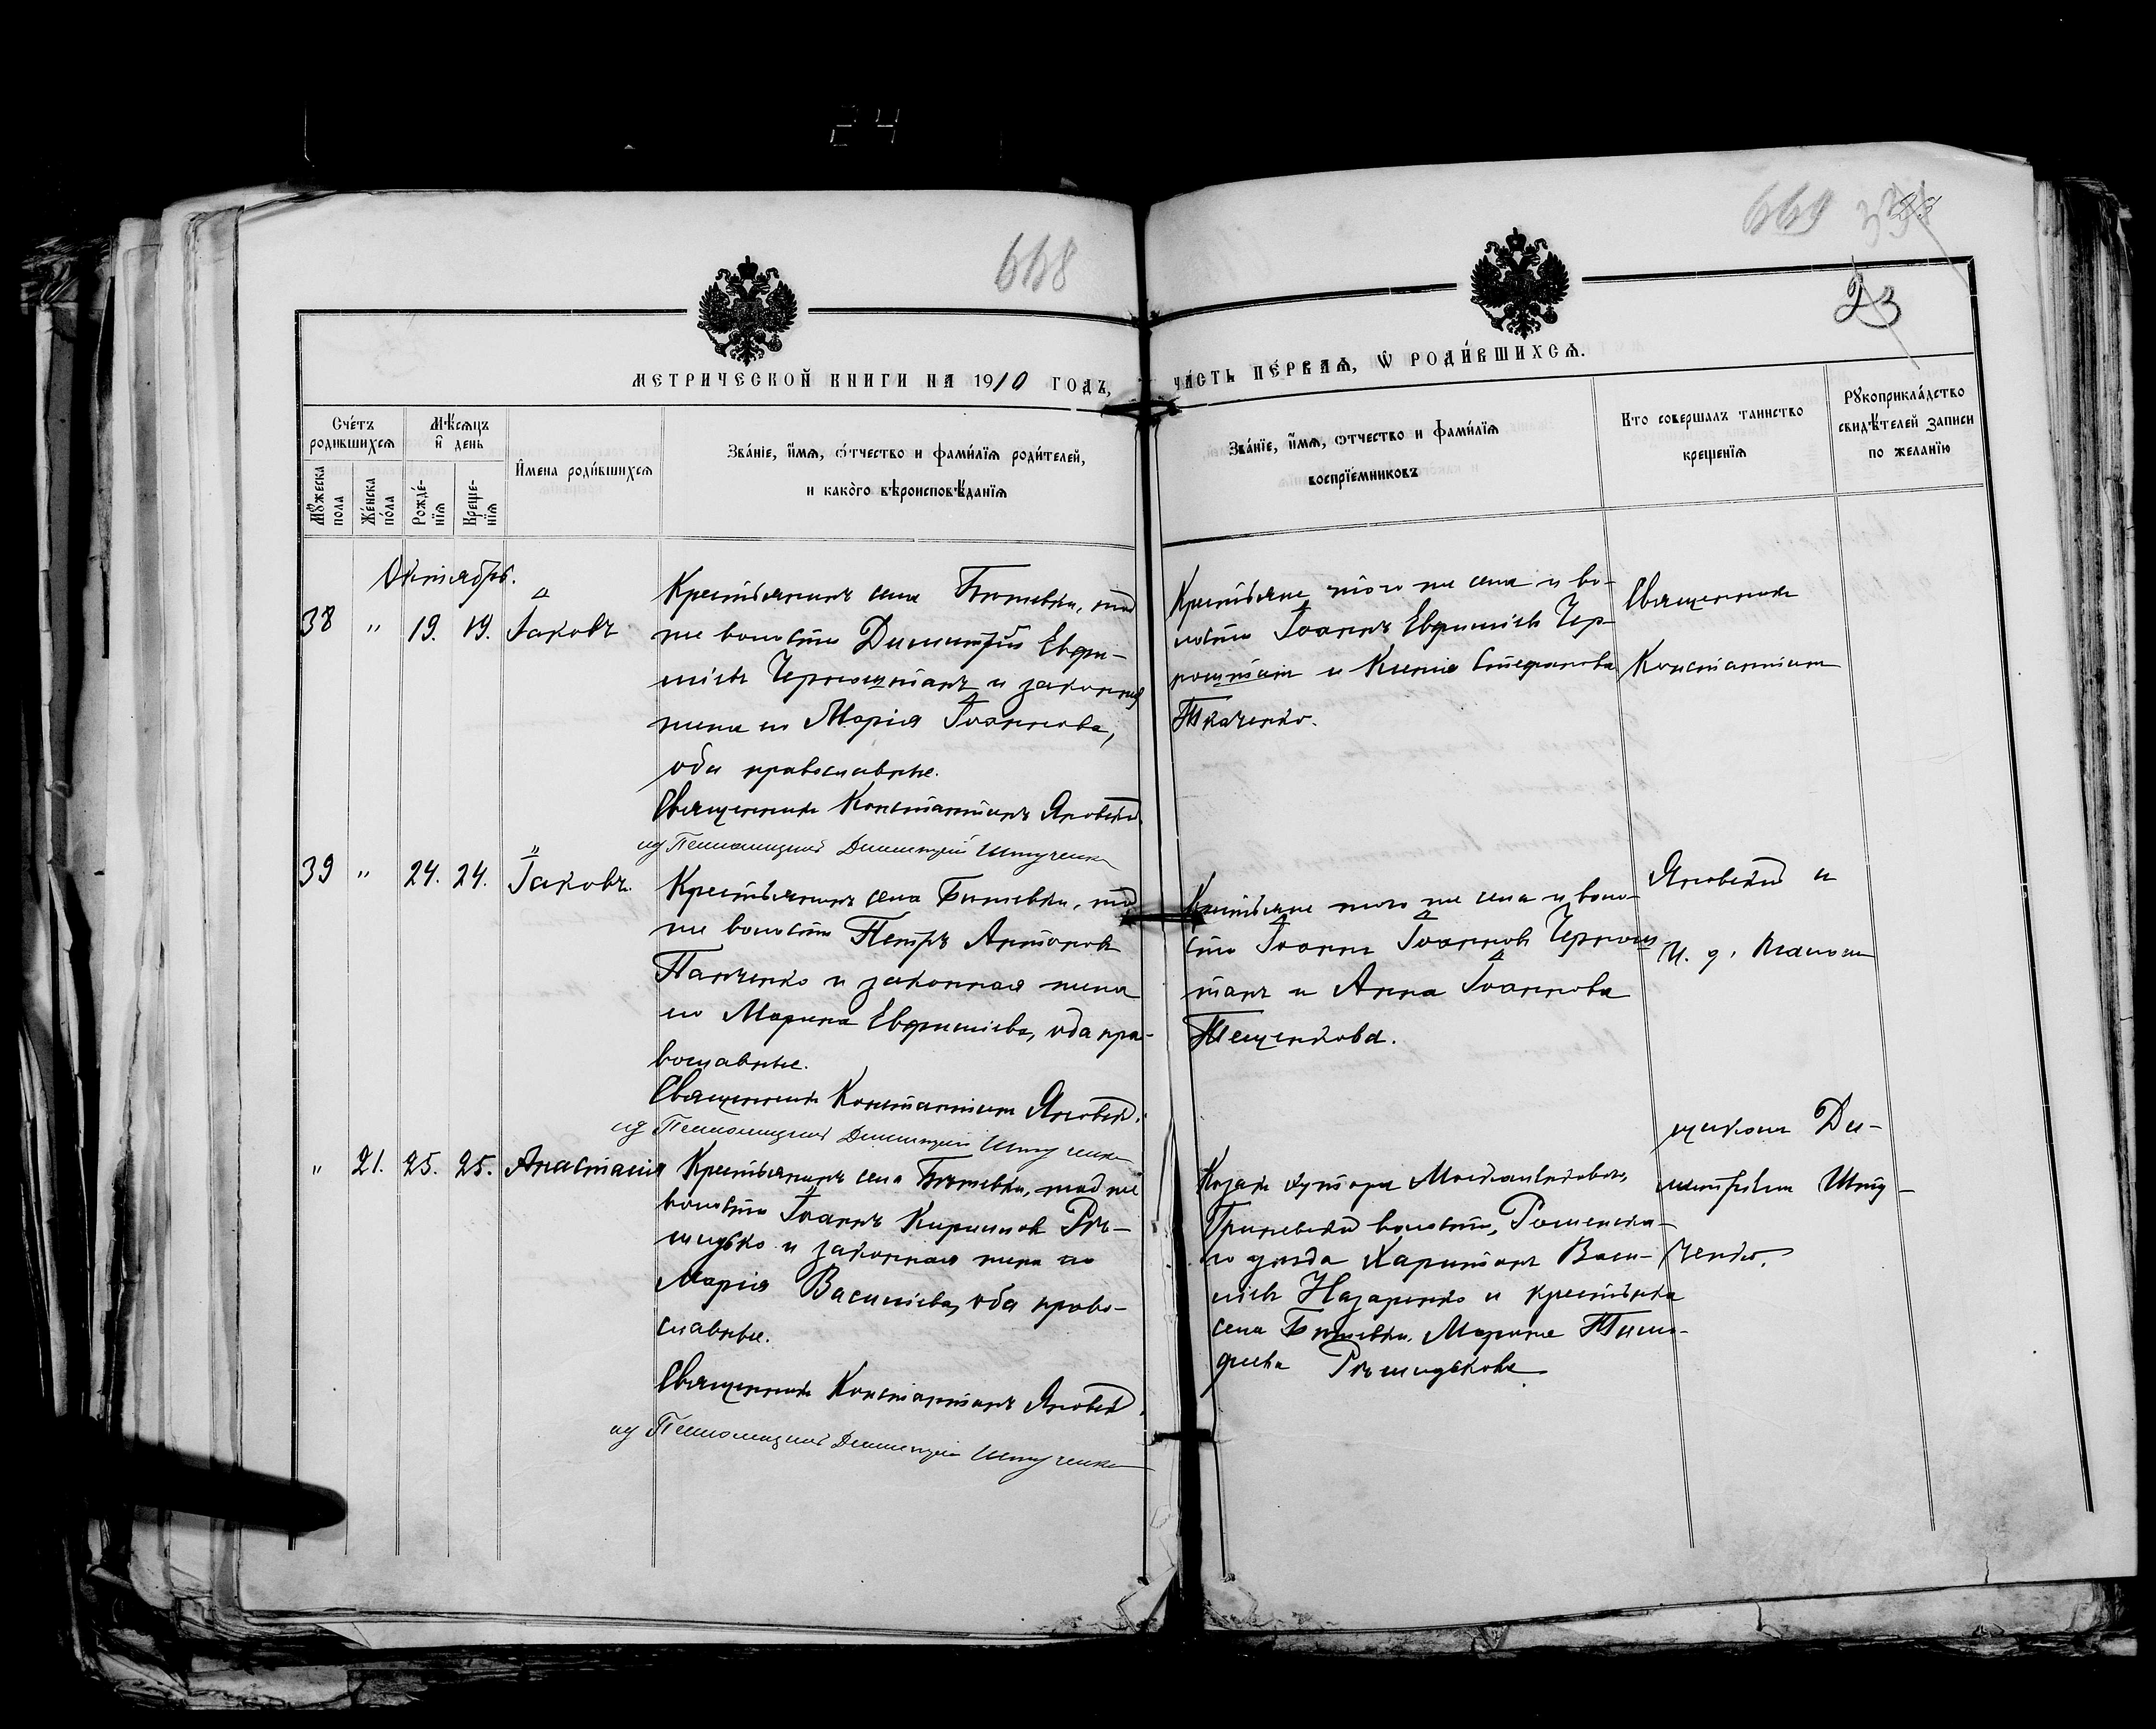 24
668
669
23
МЕТРИЧЕСКОЙ КНИГИ НА 1910 ГОДЪ,
ЧАСТЬ ПЕРВАЯ, Ѡ РОДИВШИХСЯ.
Счетъ родившихся
Мѣсяцъ и день
Имена родившихся
Званіе, имя, отчество и фамилія родителей,
и какого вѣроисповѣданія
Мужеска пола
Женска пола
Рожденія
Крещенія
Званіе, имя, отчество и фамилія
воспріемниковъ
Кто совершалъ таинство
крещенія
Рукоприкладство
свидѣтелей записи
по желанію
Октябрь.
38 " 19. 19. Іаковъ
Крестьянинъ села той
же волости Димитрій Евфи-
міевъ Черноштанъ и законная
жена его Марія Іоаннова,
оба православные.
Священникъ Константинъ Яновскій.
ид Псаломщика Димитрій Штученко
Крестьяне того же села и во-
лости Іоаннъ Евфиміевъ Чер-
ноштанъ и Ксенія Стефанова
Ткаченко.
Священникъ
Константинъ
39 " 24. 24. Іаковъ.
Крестьянинъ села той
же волости Петръ Антоновъ
Панченко и законная жена
его Марина Евфиміева, оба пра-
вославные.
Священникъ Константинъ Яновскій.
ид Псаломщика Димитрій Штученко
Крестьяне того же села и воло-
сти Іоаннъ Іоанновъ Чернош
танъ и Анна Іоаннова
Тещенкова.
Яновскій и
И. д. псалом
" 21. 25. 25. Анастасія
Крестьянинъ села той же
волости Іоаннъ Кирилловъ Рѣ-
шидько и законная жена его
Марія Васильева, оба право-
славные.
Священникъ Константинъ Яновскій.
ид Псаломщика Димитрій Штученко
Козакъ хутора
волости, Роменска-
го уѣзда Харитонъ Васи-
ліевъ Назаренко и крестьянка
села Марина Тимо-
феева Рѣшидькова.
щикомъ Ди-
митріемъ Шту-
ченко.